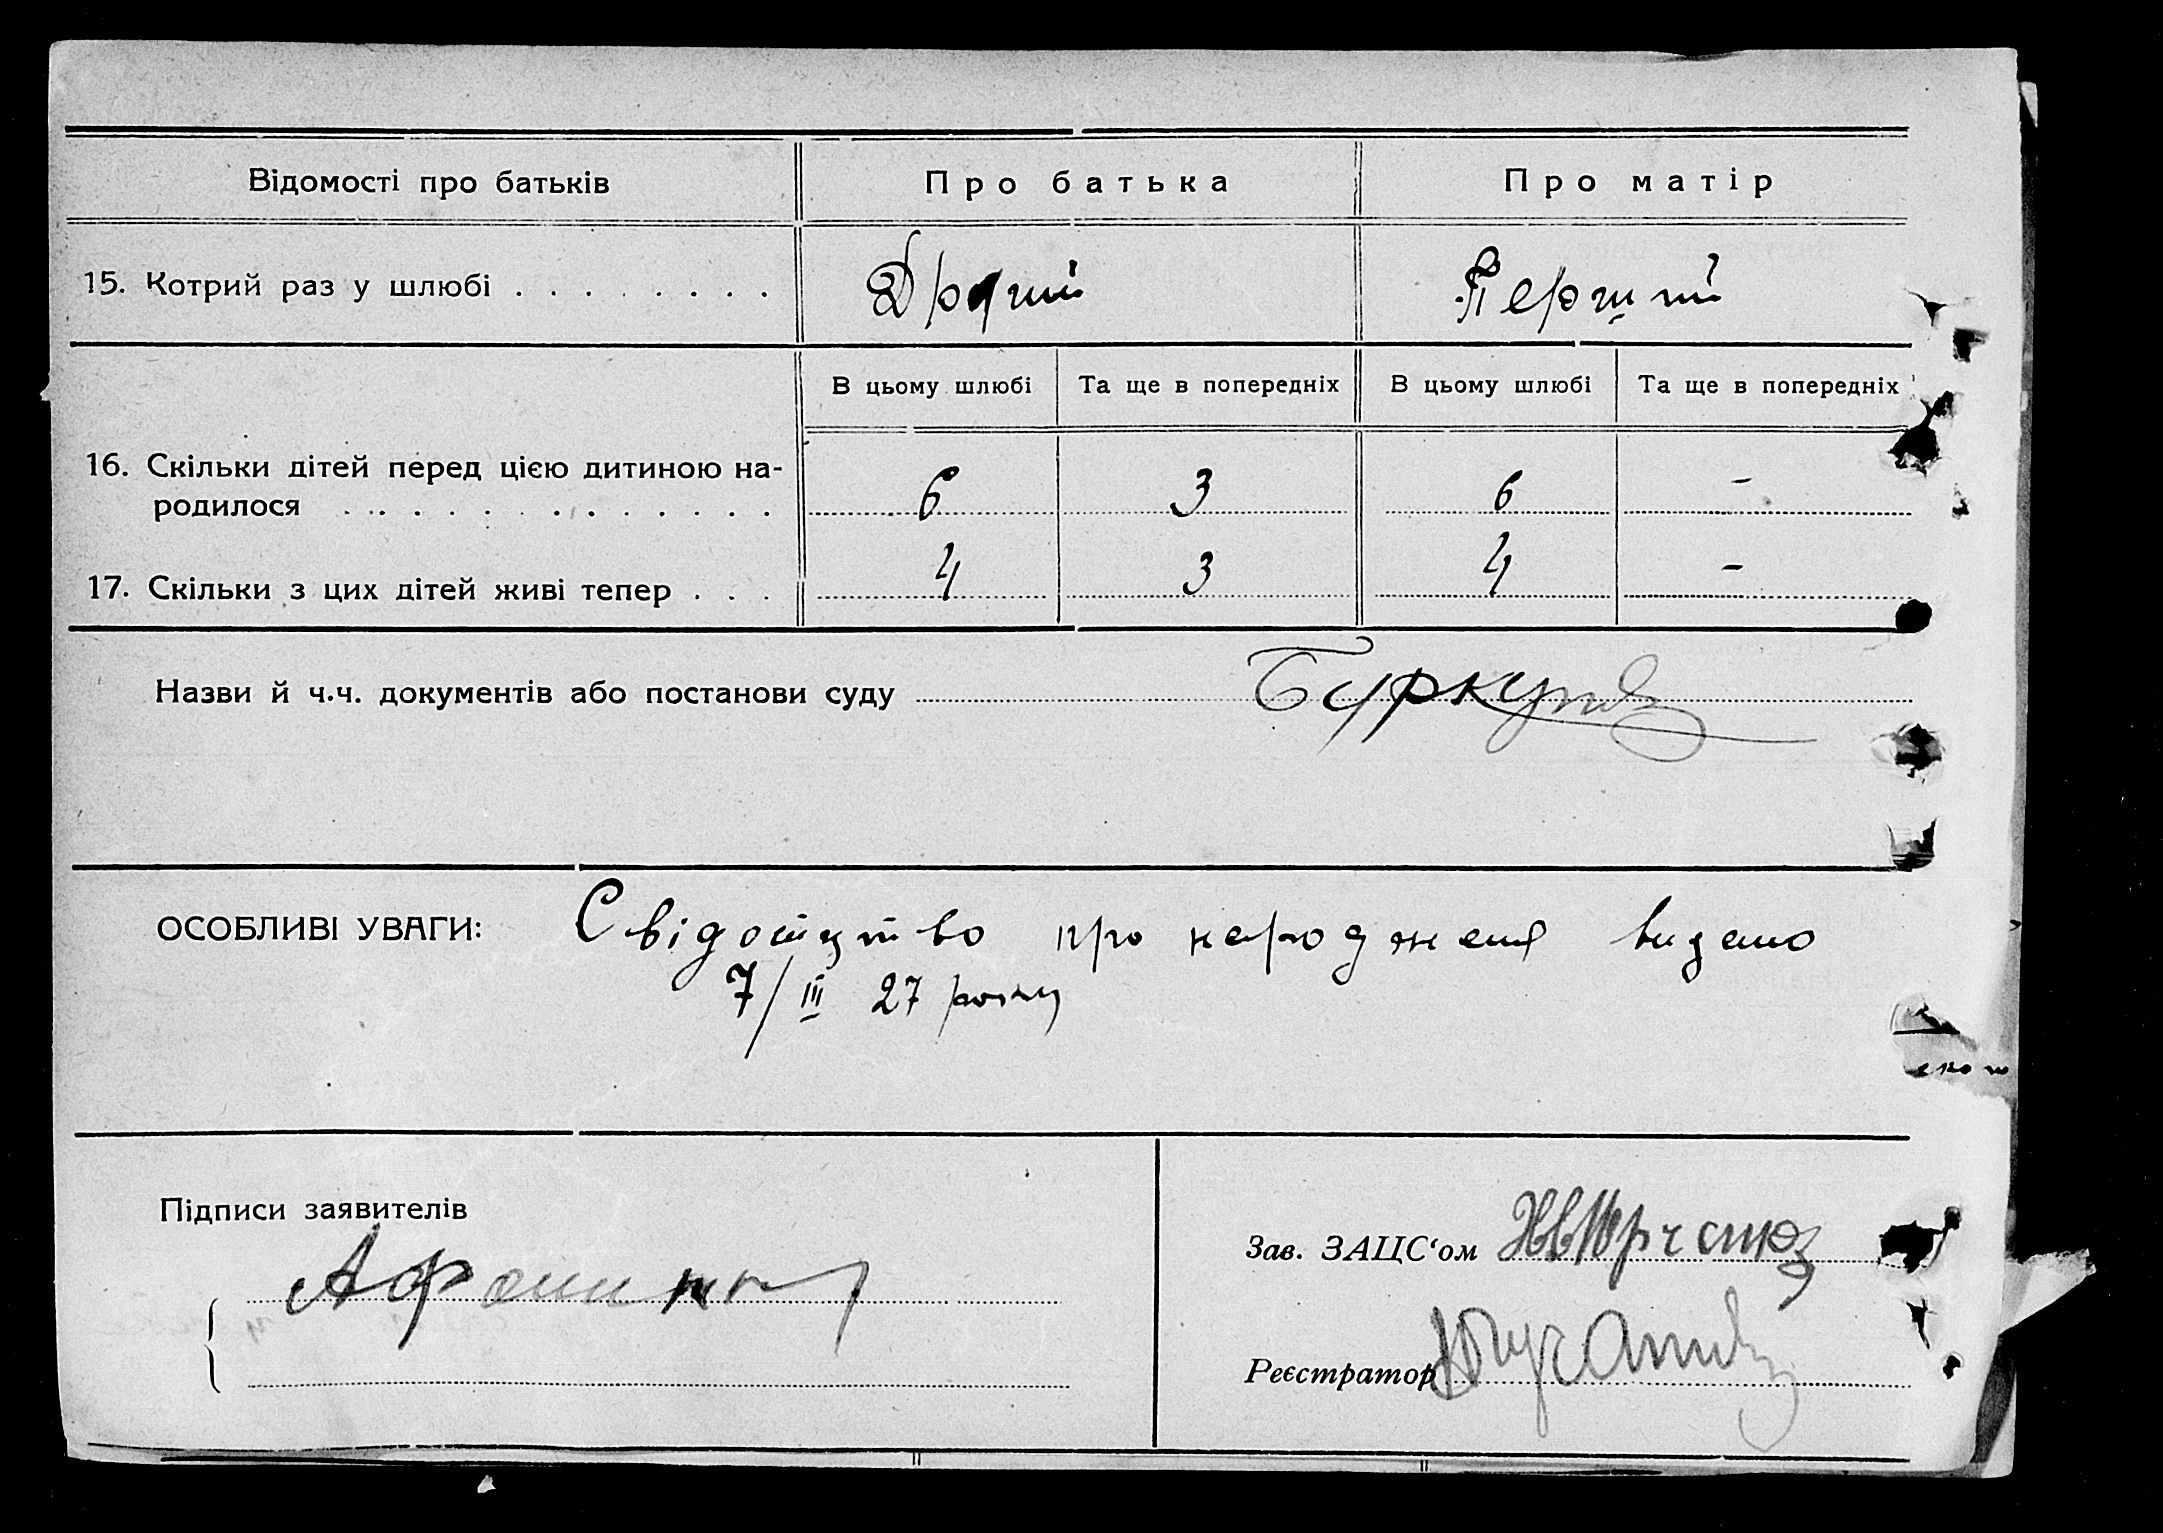 Відомості про батьків Про батька Про матір
15. Котрий раз у шлюбі . . . . . . . . Другий Перший
В цьому шлюбі Та ще в попередніх В цьому шлюбі Та ще в попередніх
16. Скільки дітей перед цією дитиною на-
родилося . . . . . . . . . . . . . 6 3 6 -
17. Скільки з цих дітей живі тепер . . . 4 3 4 -
Назви й ч.ч. документів або постанови суду
ОСОБЛИВІ УВАГИ: Свідоцтво про народженя видано
7/III 27 року
Підписи заявителів
Зав. ЗАЦС‘ом
Реєстратор